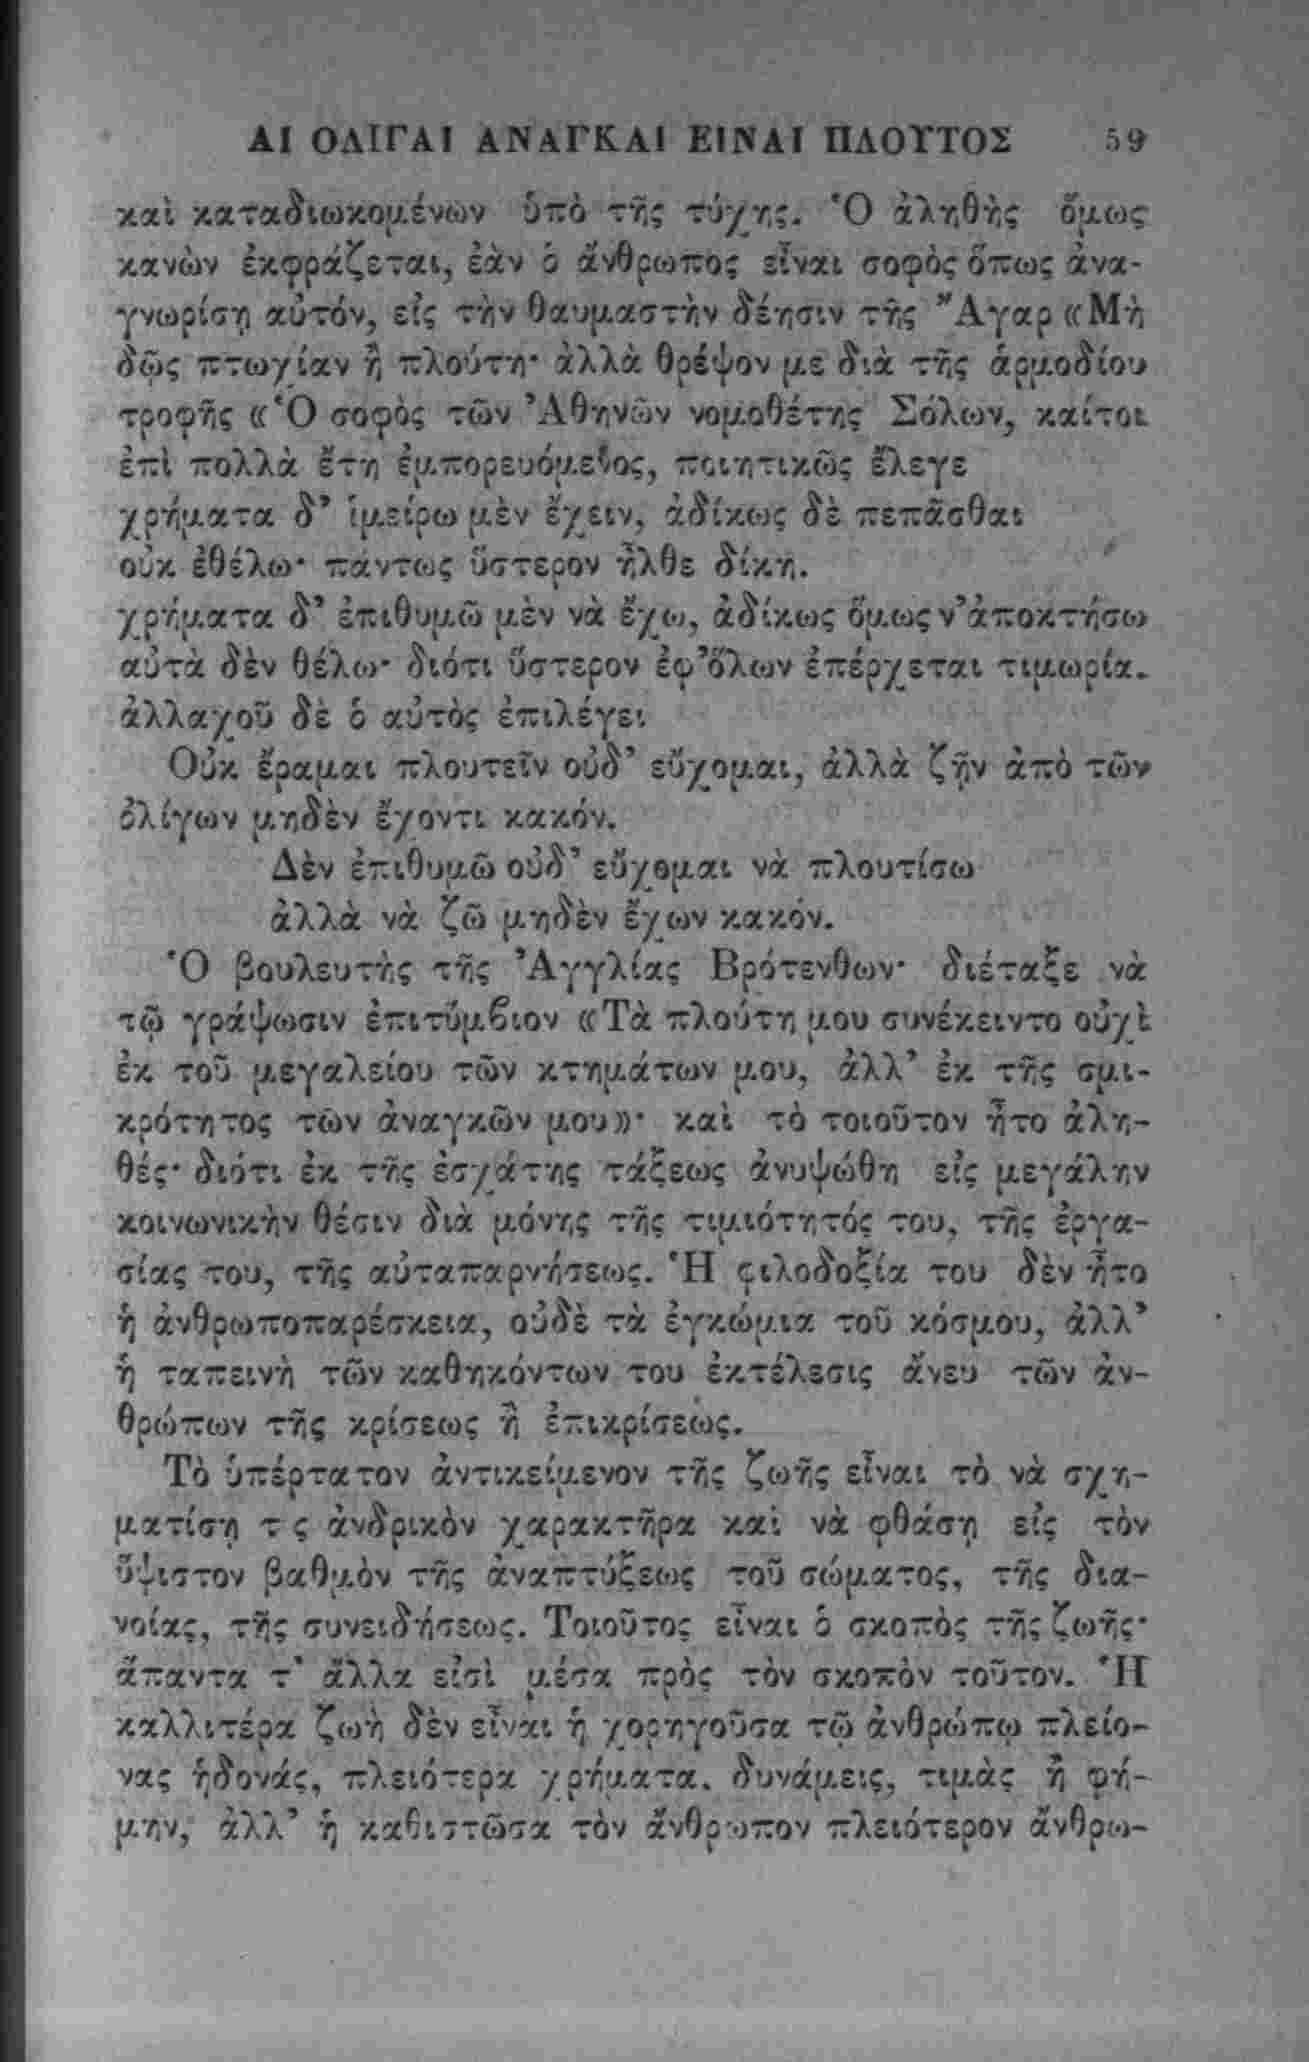 ΑΙ ΟΛΙΓΑΙ ΑΝΑΓΚΑΙ ΕΙΝΑΙ ΠΛΟΥΤΟΣ 59
καὶ καταδιωκομένων ὑπὸ τῆς τύχης. Ὁ ἀληθὴς ὅμως
κανὼν ἐκφράζεται, ἐὰν ὁ ἄνθρωπος εἶναι σοφὸς ὅπως ἀνα-
γνωρίσῃ αὐτόν, εἰς τὴν θαυμαστὴν δέησιν τῆς Ἄγαρ «Μὴ
δῷς πτωχίαν ἢ πλούτη· ἀλλὰ θρέψον με διὰ τῆς ἁρμοδίου
τροφῆς «Ὁ σοφὸς τῶν Ἀθηνῶν νομοθέτης Σόλων, καίτοι
ἐπὶ πολλὰ ἔτη ἐμπορευόμενος, ποιητικῶς ἔλεγε
χρήματα δ’ ἱμείρω μὲν ἔχειν, ἀδίκως δὲ πεπᾶσθαι
οὐκ ἐθέλω· πάντως ὕστερον ἦλθε δίκη.
χρήματα δ’ ἐπιθυμῶ μὲν νὰ ἔχω, ἀδίκως ὅμως ν’ἀποκτήσω
αὐτὰ δὲν θέλω· διότι ὕστερον ἐφ’ὅλων ἐπέρχεται τιμωρία.
ἀλλαχοῦ δὲ ὁ αὐτὸς ἐπιλέγει
Οὐκ ἔραμαι πλουτεῖν οὐδ’ εὔχομαι, ἀλλὰ ζῆν ἀπὸ τῶν
ὀλίγων μηδὲν ἔχοντι κακόν.
Δὲν ἐπιθυμῶ οὐδ’ εὔχομαι νὰ πλουτίσω
ἀλλὰ νὰ ζῶ μηδὲν ἔχων κακόν.
Ὁ βουλευτὴς τῆς Ἀγγλίας Βρότενθων· διέταξε νὰ
τῷ γράψωσιν ἐπιτύμβιον «Τὰ πλούτη μου συνέκειντο οὐχὶ
ἐκ τοῦ μεγαλείου τῶν κτημάτων μου, ἀλλ’ ἐκ τῆς σμι-
κρότητος τῶν ἀναγκῶν μου»· καὶ τὸ τοιοῦτον ἦτο ἀλη-
θές· διότι ἐκ τῆς ἐσχάτης τάξεως ἀνυψώθη εἰς μεγάλην
κοινωνικὴν θέσιν διὰ μόνης τῆς τιμιότητός του, τῆς ἐργα-
σίας του, τῆς αὐταπαρνήσεως. Ἡ φιλοδοξία του δὲν ἦτο
ἡ ἀνθρωποπαρέσκεια, οὐδὲ τὰ ἐγκώμια τοῦ κόσμου, ἀλλ’
ἡ ταπεινὴ τῶν καθηκόντων του ἐκτέλεσις ἄνευ τῶν ἀν-
θρώπων τῆς κρίσεως ἢ ἐπικρίσεώς.
Τὸ ὑπέρτατον ἀντικείμενον τῆς ζωῆς εἶναι τὸ νὰ σχη-
ματίσῃ τ ς ἀνδρικὸν χαρακτῆρα καὶ νὰ φθάσῃ εἰς τὸν
ὕψιστον βαθμὸν τῆς ἀναπτύξεως τοῦ σώματος, τῆς δια-
νοίας, τῆς συνειδήσεως. Τοιοῦτος εἶναι ὁ σκοπὸς τῆς ζωῆς·
ἅπαντα τ’ ἄλλα εἰσὶ μέσα πρὸς τὸν σκοπὸν τοῦτον. Ἡ
καλλιτέρα ζωὴ δὲν εἶναι ἡ χορηγοῦσα τῷ ἀνθρώπῳ πλείο-
νας ἡδονάς, πλειότερα χρήματα. δυνάμεις, τιμὰς ἢ φή-
μην, ἀλλ’ ἡ καθιστῶσα τὸν ἄνθρωπον πλειότερον ἄνθρω-